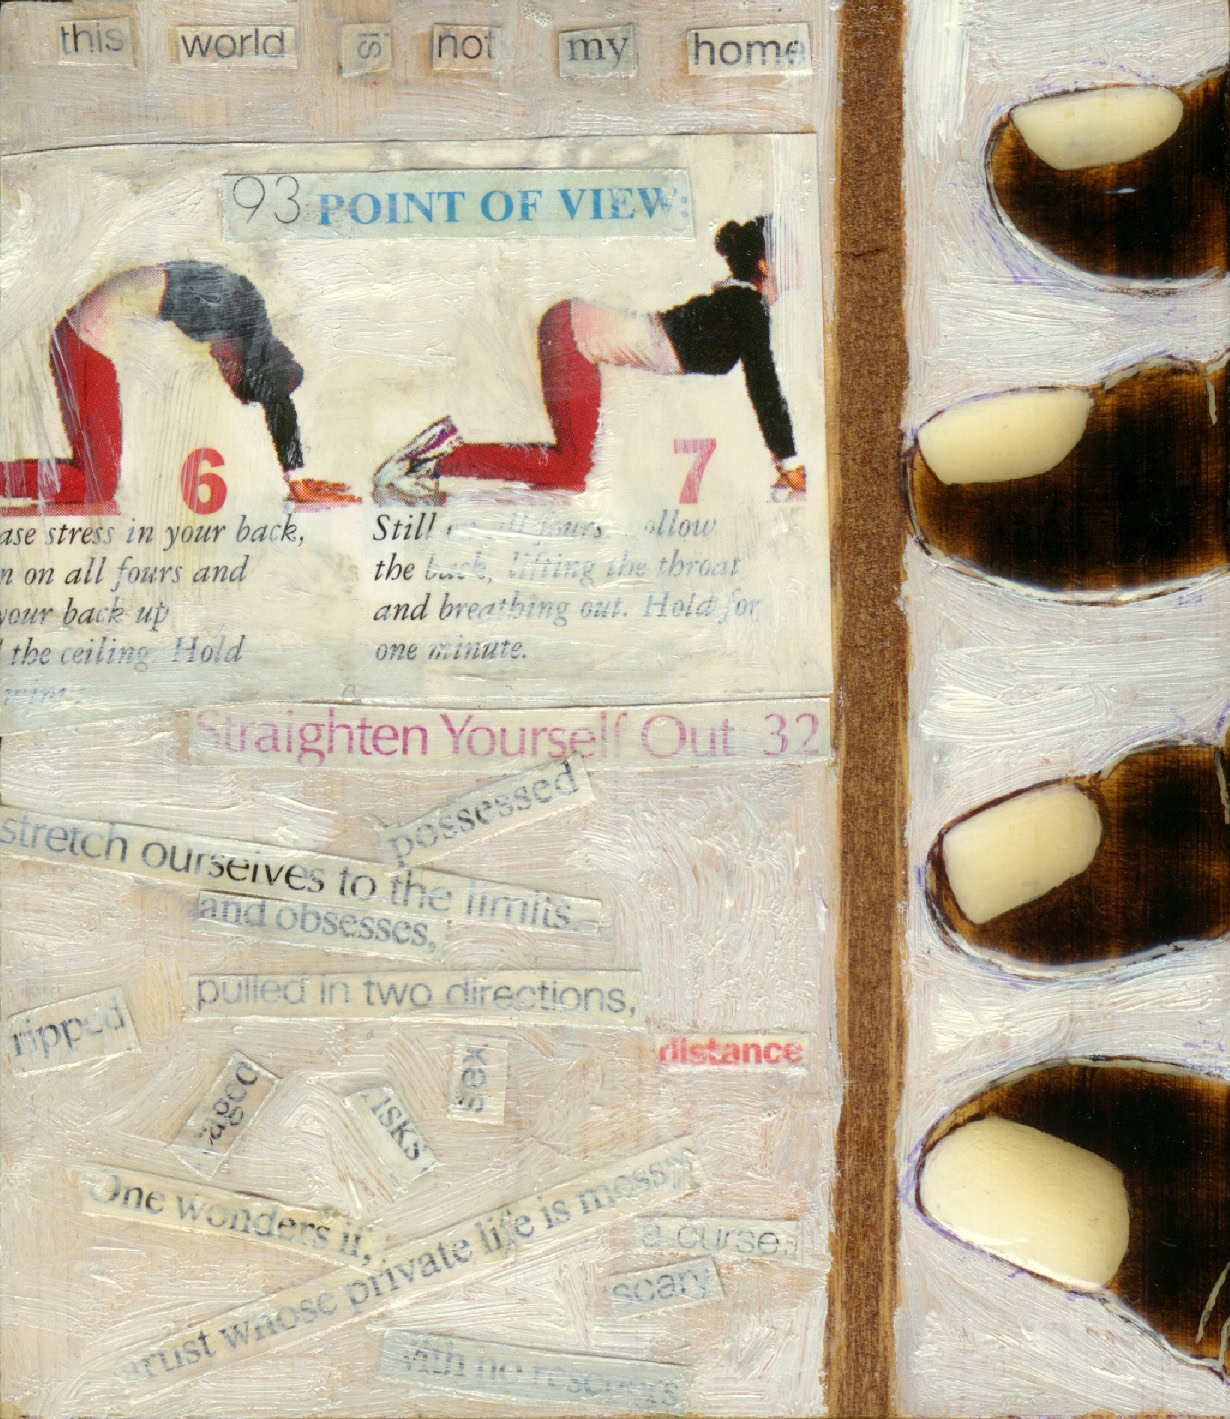 this world is not my home
93 POINT OF VIEW:
6
7
ase stress in your back,
n on all fours and
your back up
the ceiling. Hold
Still on all fours, hollow
the back, lifting the throat
and breathing out. Hold for
one minute.
Straighten Yourself Out 32
possessed
stretch ourselves to the limits.
and obsesses,
pulled in two directions,
ripped
distance
sex
aged
isks
One wonders if,
trust whose private life is messy
a curse
scary
with no